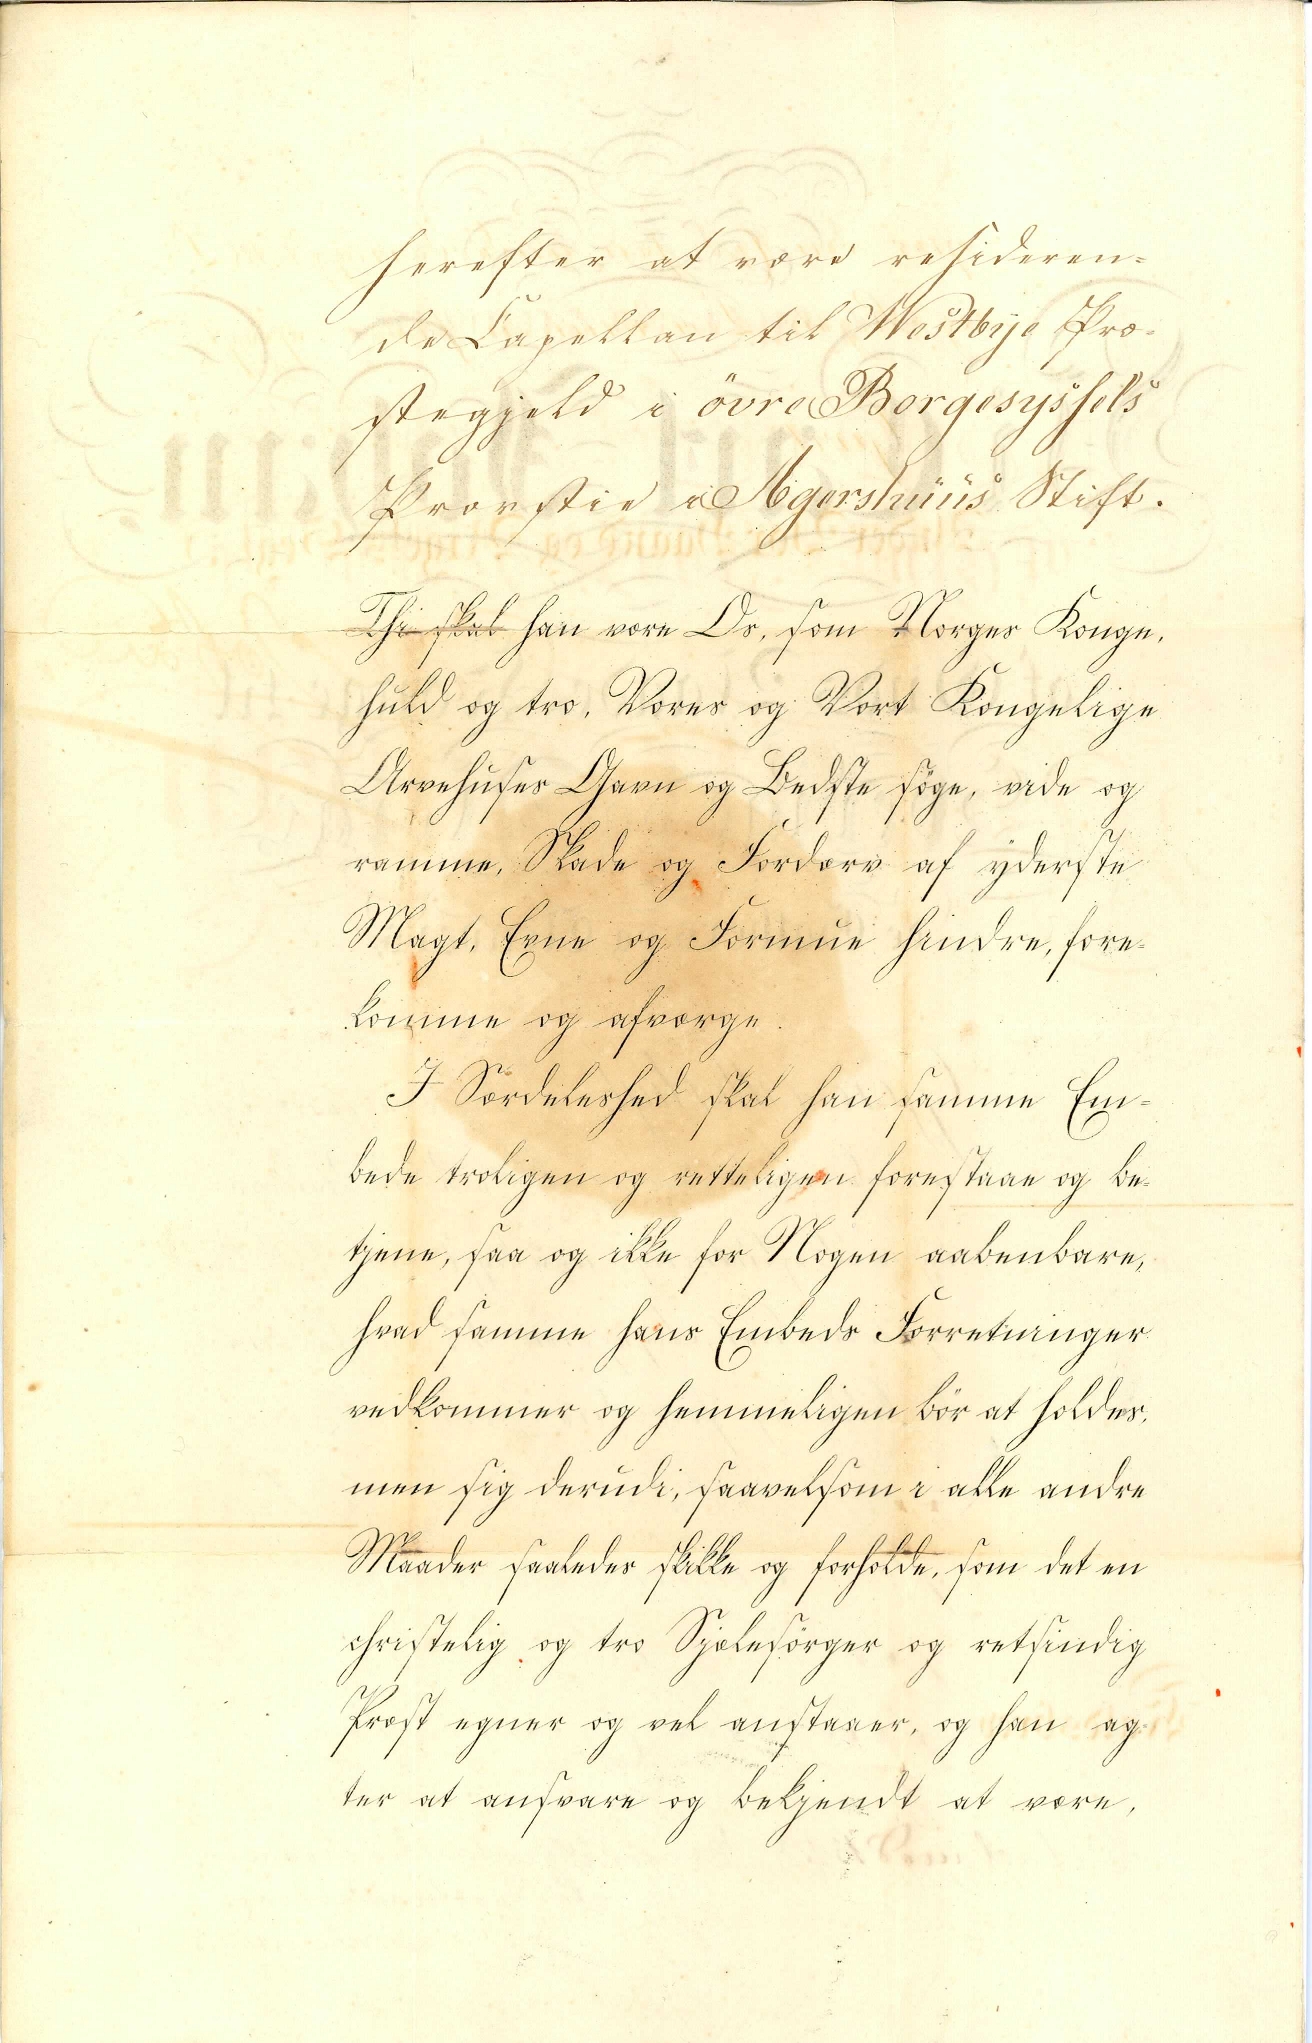 herefter at være resideren-
de Capellan til Westbÿe Præ-
stegjeld i övre Borgesÿssels
Provstie i Agershuus Stift.
Thi skal han være Os, som Norges Konge,
huld og tro, Vores og Vort Kongelige
Arvehuses Gavn og Bedste söge, vide og
ramme, Skade og Fordærv af yderste
Magt, Evne og Formue hindre, fore-
komme og afværge.
I Særdeleshed skal han samme Em-
bede troligen og retteligen forestaae og be-
tjene, saa og ikke for Nogen aabenbare,
hvad samme hans Embeds Forretninger
vedkommer og hemmeligen bör at holdes,
men sig derudi, saavelsom i alle andre
Maader saaledes skikke og forholde, som det en
christelig og tro Sjælesörger og retsindig
Præst egner og vel anstaaer, og han ag-
ter at ansvare og bekjendt at være,